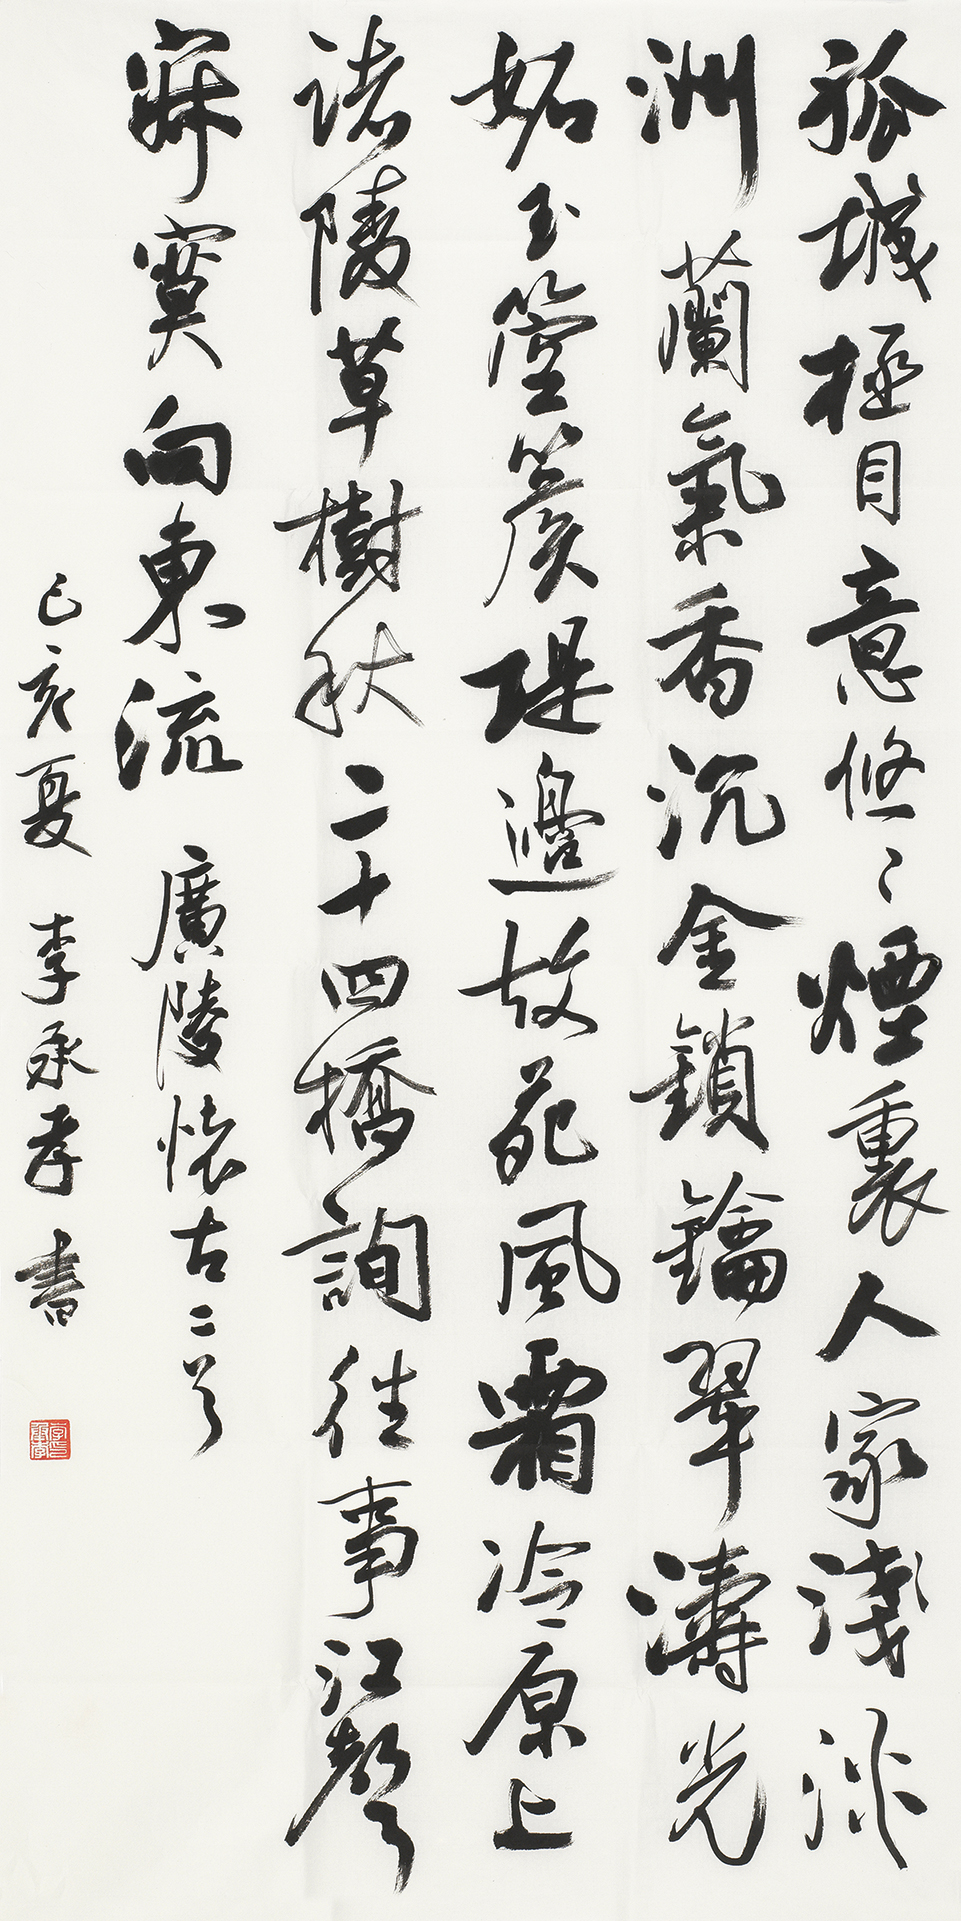 孤城極目意悠々煙裏人家淺淡
洲蘭氣香沉金鎖鑰翠濤光
妬玉箜篌堤邊故苑風霜冷原上
諸陵草樹秋二十四橋詢往事江聲
寂寞向東流 廣陵懷古二首
己亥夏 李承孝 書